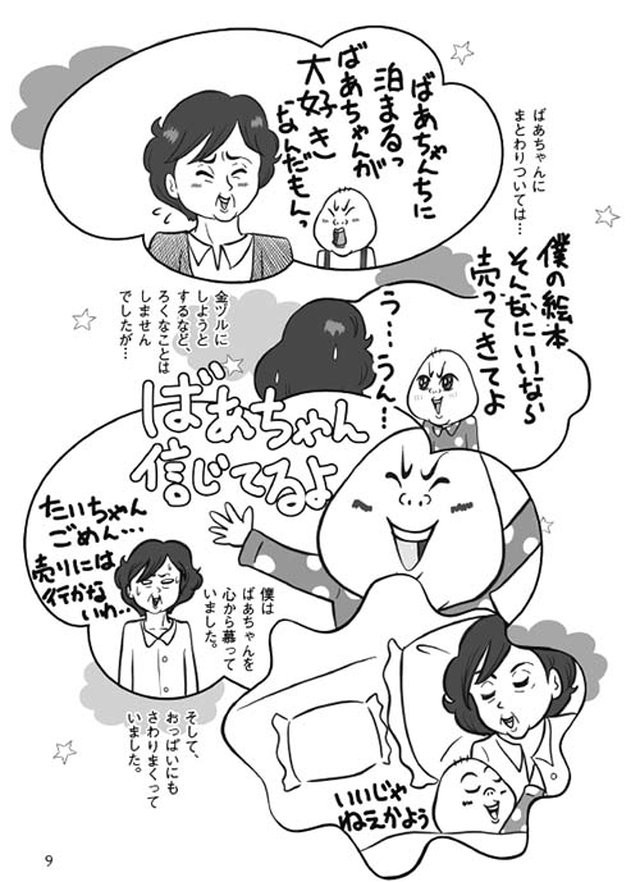 ばあちゃんに
まとわりついては…
ばあちゃんちに
泊まるっ
ばあちゃんが
大好き
なんだもんっ
僕の絵本
そんなにいいなら
売ってきてよ
う…うん…
金ヅルに
しようと
するなど、
ろくなことは
しません
でしたが…
ばあちゃん
信じてるよ
たいちゃん
ごめん…
売りには
行かな
いわ…
僕は
ばあちゃんを
心から慕って
いました。
そして、
おっぱいにも
さわりまくって
いました。
いいじゃ
ねえかよぅ
9